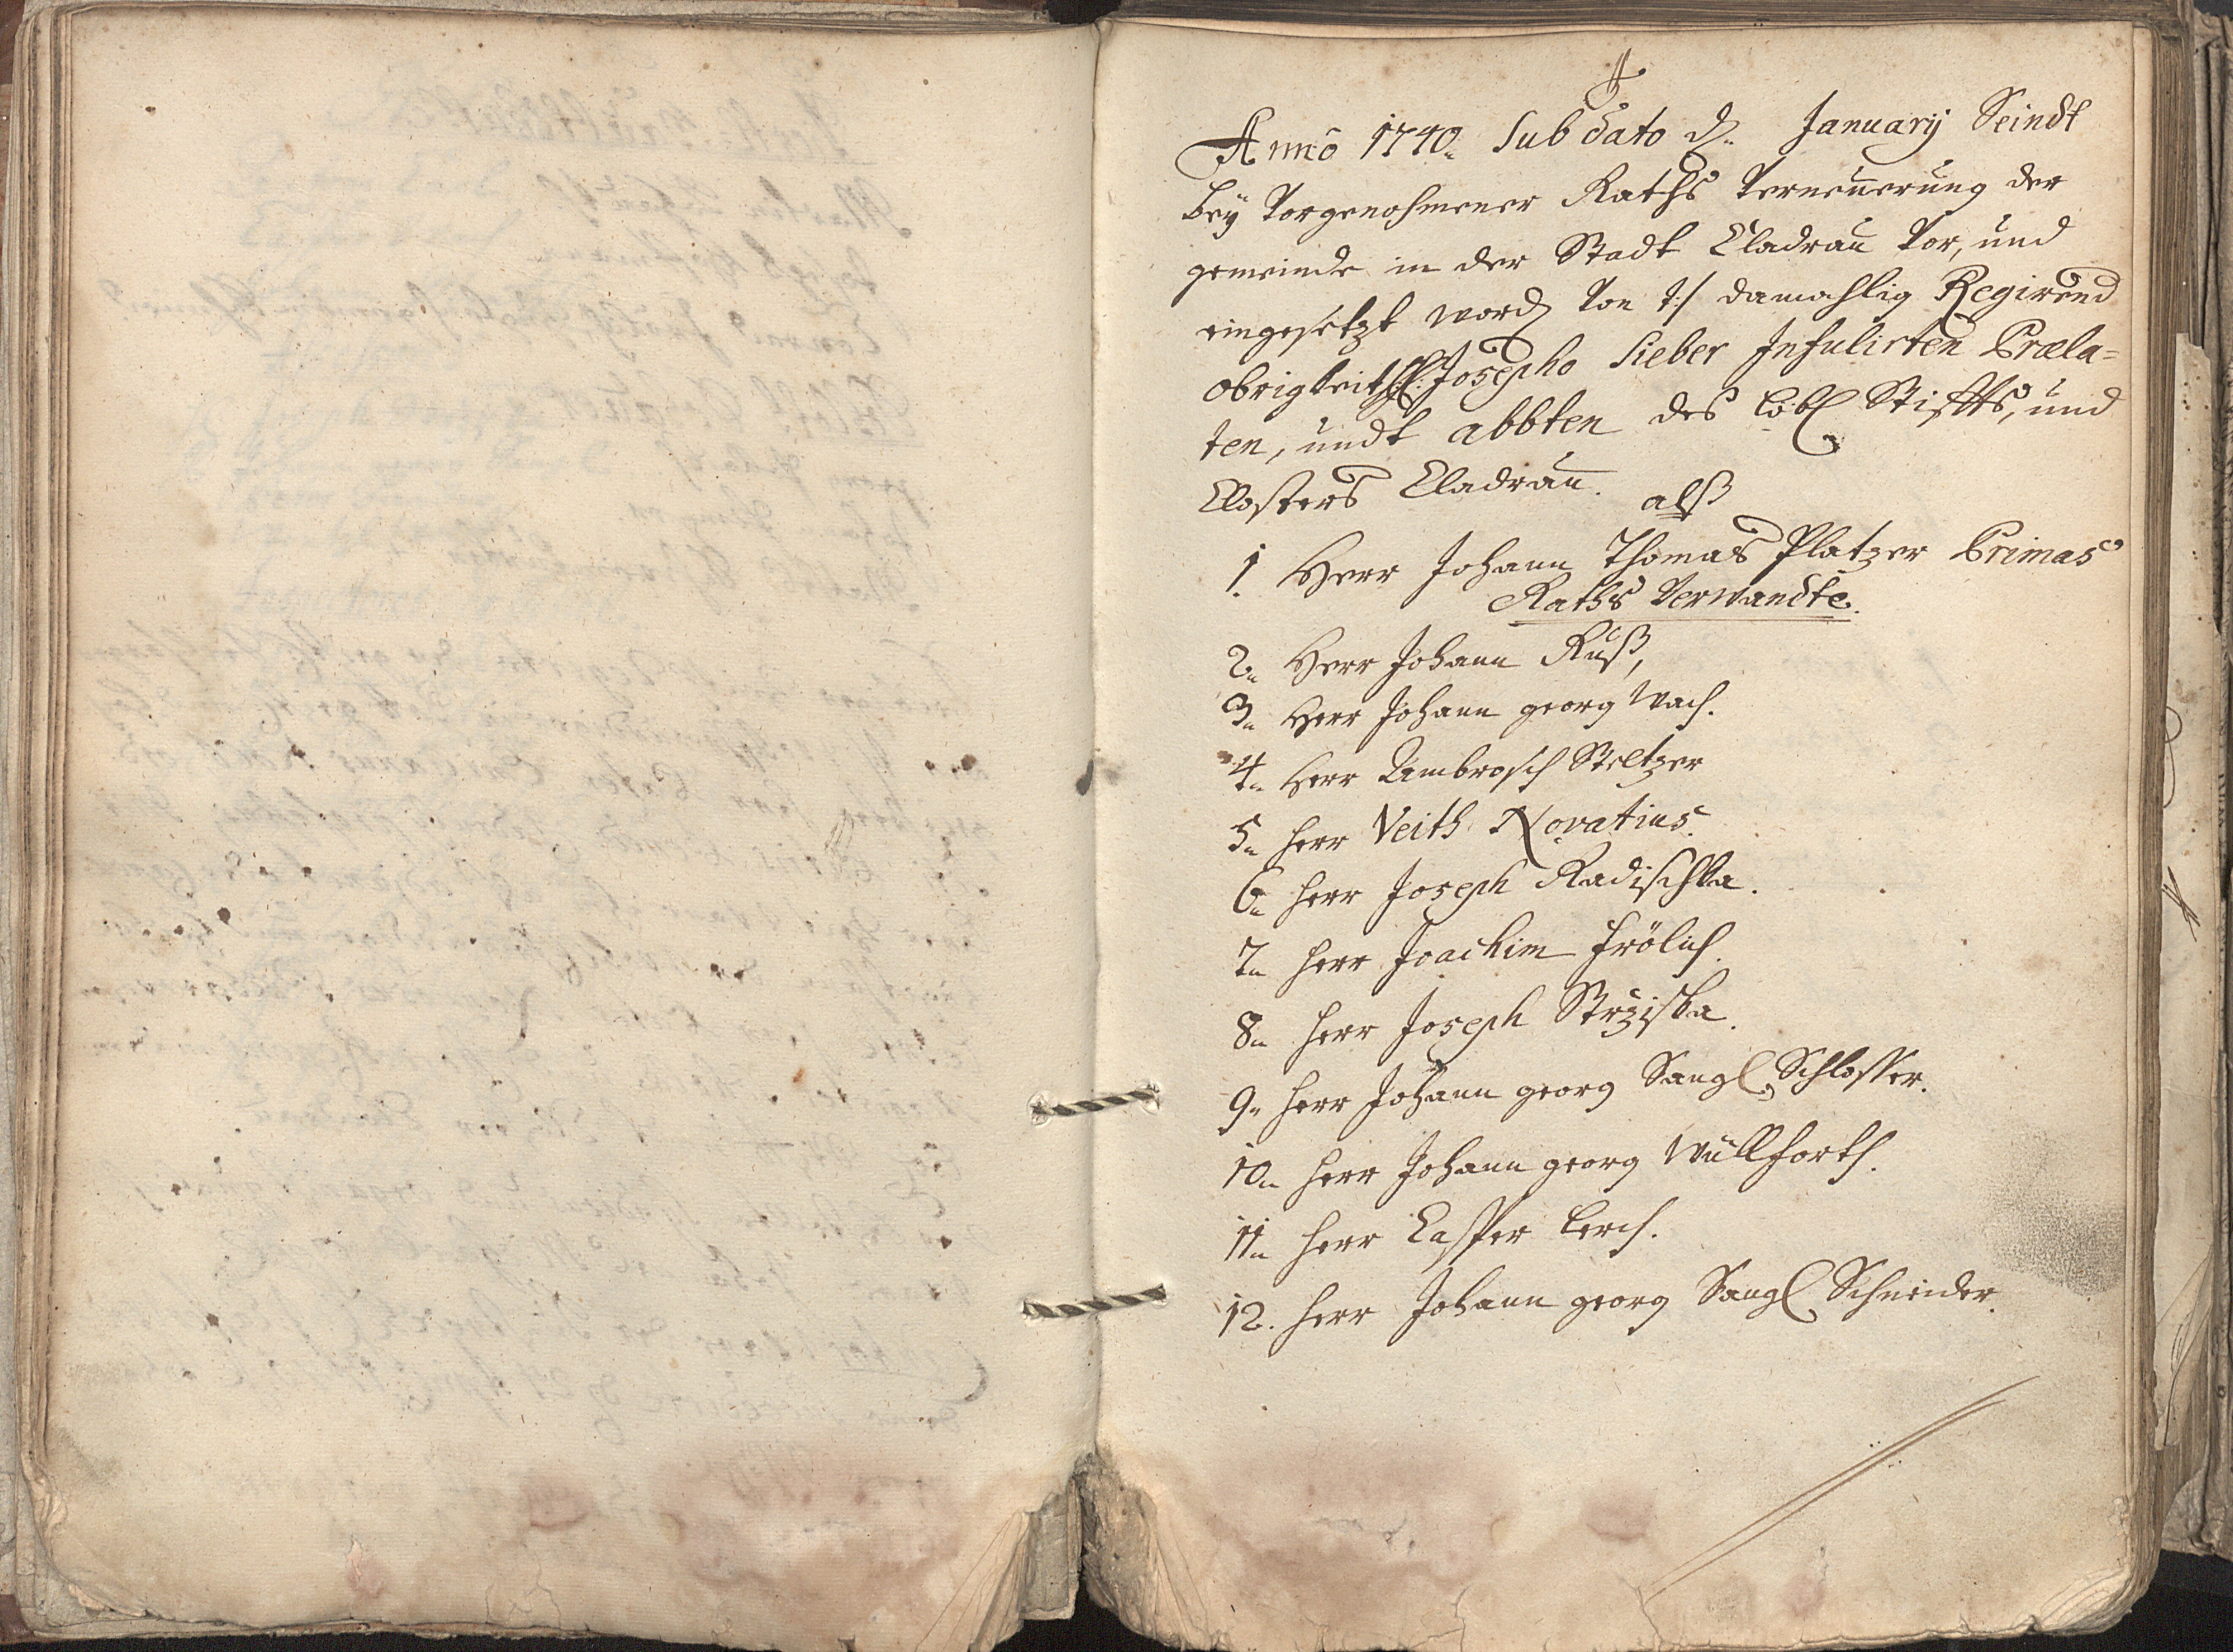 Anno 1740. Sub dato d. January Seindt
beÿ Vorgenohmener Raths Verneuerung der
gemeinde in der Stadt Cladrau Vor, und
eingesetzt word Von t:/ damahlig Regirend
obrigkeit Josepho Sieber Infulirten Præla=
ten, undt abbten des löbl Stiffts, und
Closters Cladrau.
alß
1. Herr Johann Thomas Platzer Primas
Raths Verwandte.
2. Herr Johann Ruß,
3. Herr Johann georg Wach.
4. Herr Ambrosch Steltzer
5. Herr Veith Novatius.
6. Herr Joseph Radischka.
7. Herr Joachim Frölich.
8. Herr Joseph Strziska.
9. Herr Johann georg Sangl Schlosser.
10. Herr Johann georg Wullforth.
11. Herr Casper Lerch.
12. Herr Johann georg Sangl Schneider.